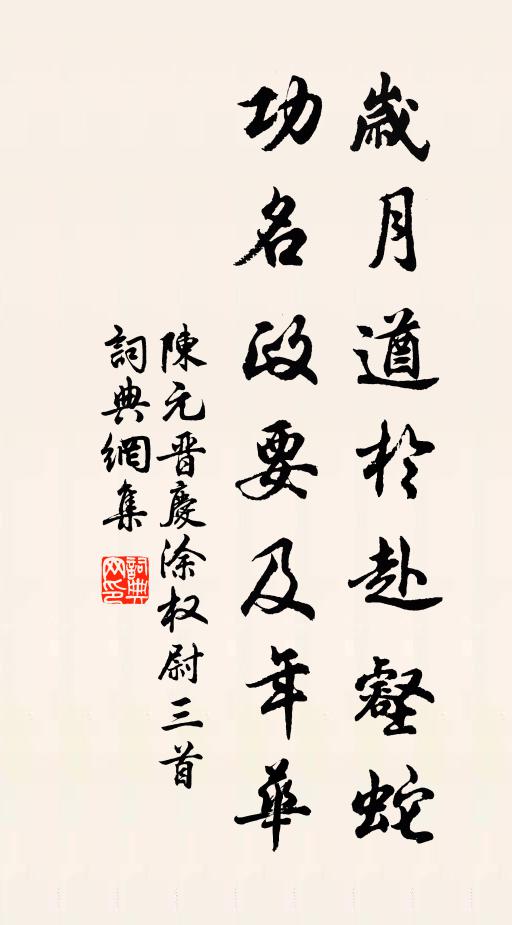 歲月遒於赴壑蛇
功名政要及年華
陳元晉慶涂权尉三首
詞典網集
詞典网印